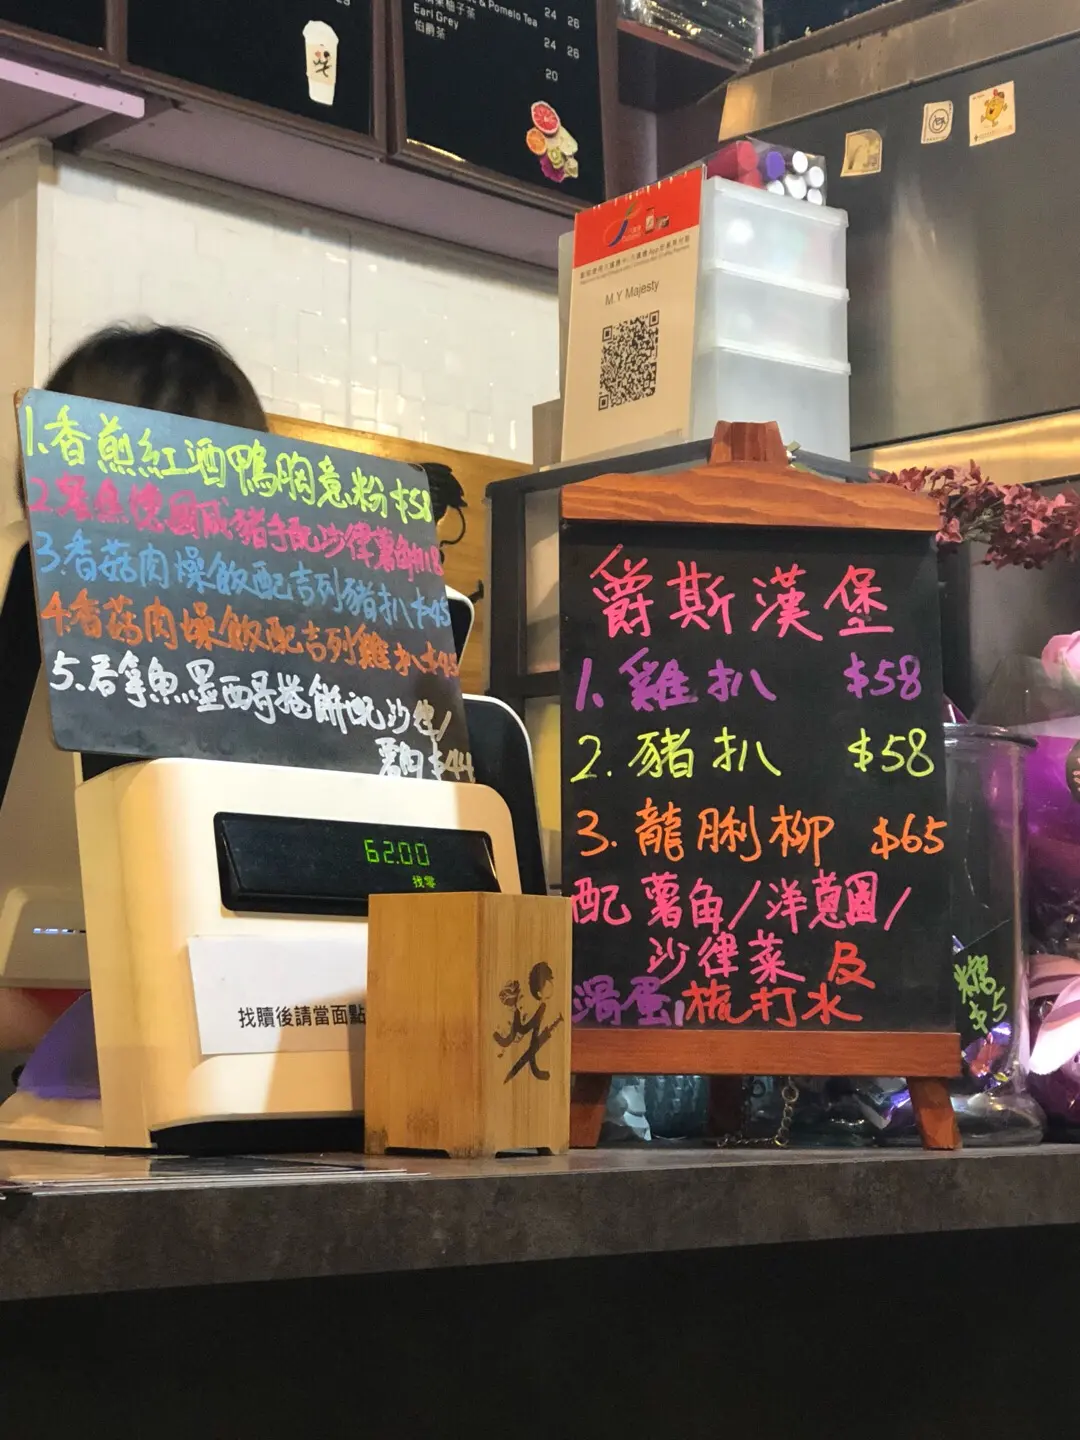 & Pomelo Tea 24 26
Earl Grey 24 26
伯爵茶 20
M.Y Majesty
1.香煎紅酒鴨胸意粉 $58
配沙律薯角
3.香菇肉燥飯配吉列豬扒 $45
4.香菇肉燥飯配吉列雞扒 $45
5.吞拿魚墨西哥捲餅配沙律/
$44
62.00
找零
找贖後請當面點
爵斯漢堡
1.雞扒 $58
2.豬扒 $58
3.龍脷柳 $65
配薯角/洋蔥圈/
沙律菜及
滑蛋,梳打水
糖
$5